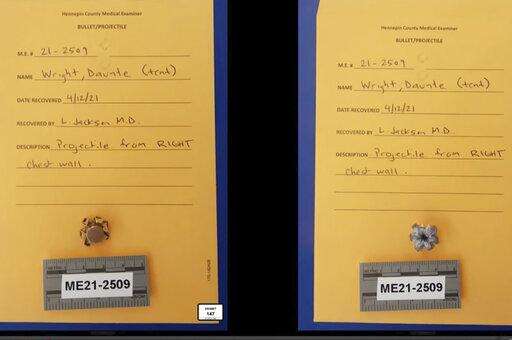 Hennepin County Medical Examiner
BULLET/PROJECTILE
M.E.# 21-2509
NAME Wright, Daunte (tent)
DATE RECOVERED 4/12/21
RECOVERED BY L. Jackson M.D.
DESCRIPTION Projectile from RIGHT
chest wall.
ME21-2509
EXHIBIT
147
Hennepin County Medical Examiner
BULLET/PROJECTILE
M.E.# 21-2509
NAME Wright, Daunte (tent)
DATE RECOVERED 4/12/21
RECOVERED BY L. Jackson M.D.
DESCRIPTION Projectile from RIGHT
chest wall.
ME21-2509